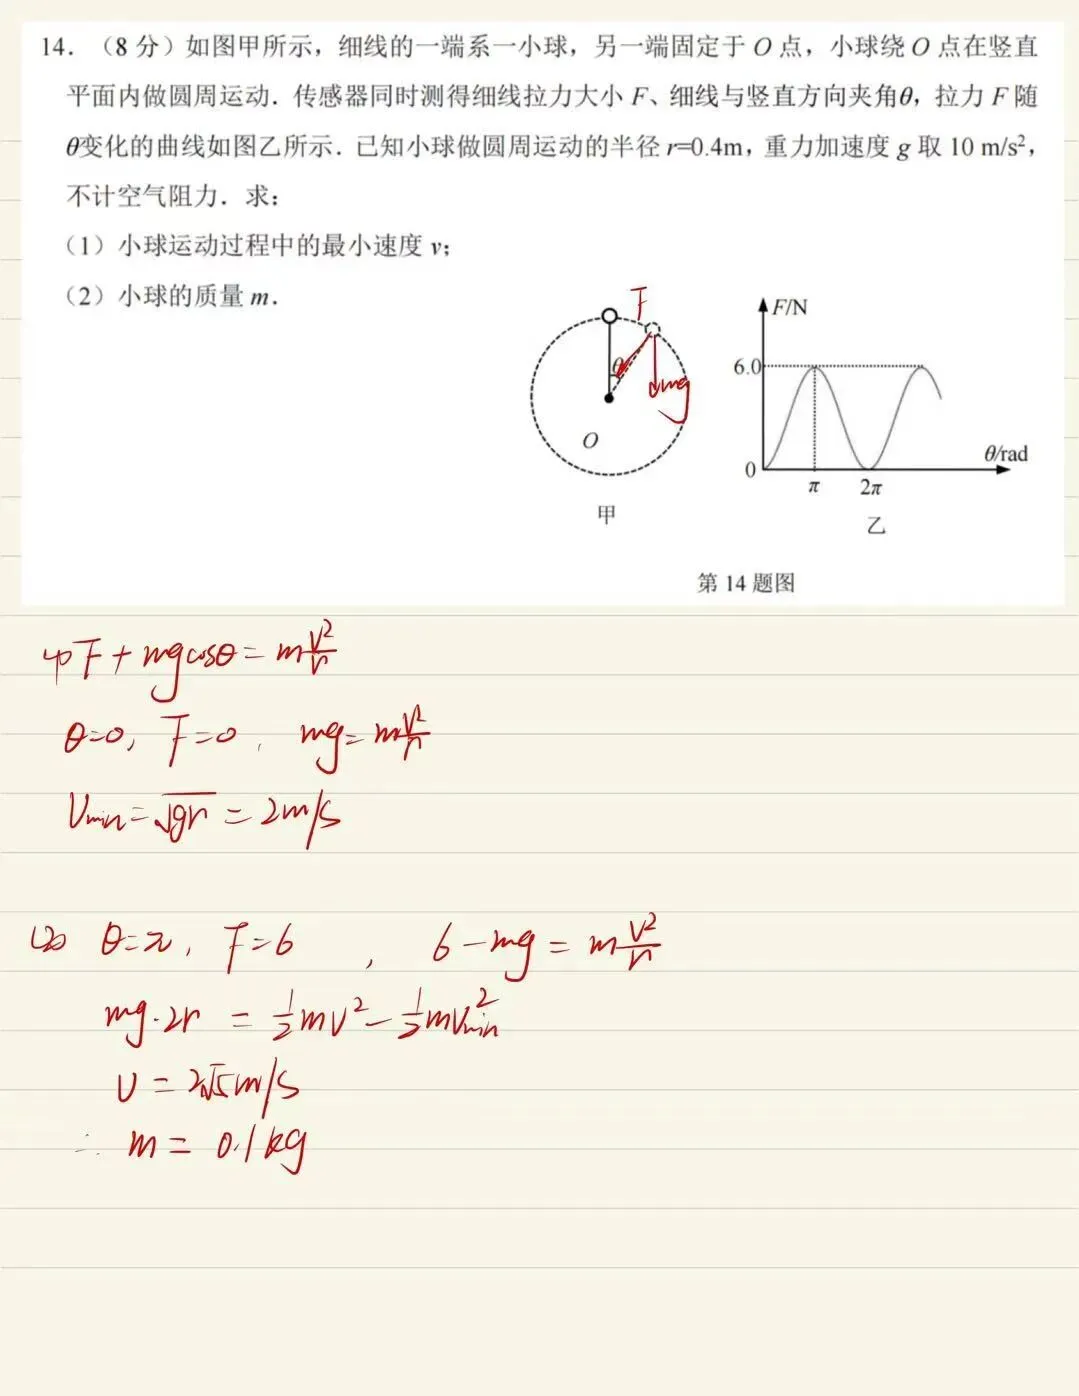 14．（8 分）如图甲所示，细线的一端系一小球，另一端固定于 O 点，小球绕 O 点在竖直
平面内做圆周运动．传感器同时测得细线拉力大小 F、细线与竖直方向夹角θ，拉力 F 随
θ变化的曲线如图乙所示．已知小球做圆周运动的半径 r=0.4m，重力加速度 g 取 10 m/s²，
不计空气阻力．求：
（1）小球运动过程中的最小速度 v；
（2）小球的质量 m．
F
θ
mg
O
甲
F/N
6.0
0
π
2π
θ/rad
乙
第 14 题图
(1) F + mgcosθ = m v²/r
θ=0, F=0, mg = m v²/r
Vmin = √gr = 2m/s
(2) θ=π, F=6, 6-mg = m v²/r
mg·2r = ½mv² - ½mvmin²
v = 2√5 m/s
∴ m = 0.1kg